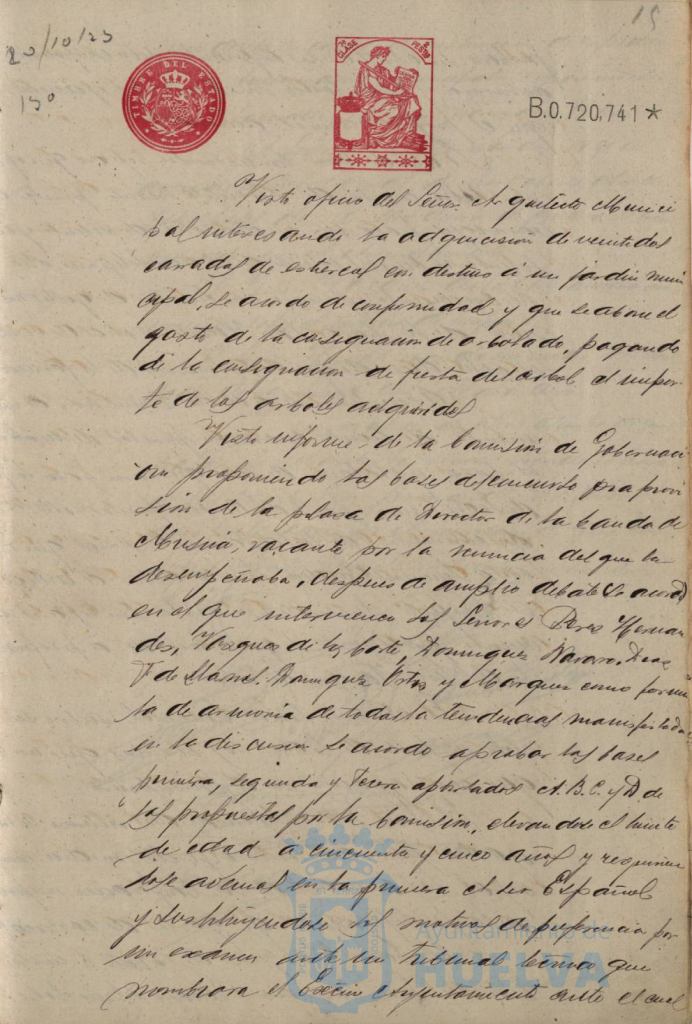 20/10/23
15
15º
TIMBRE DEL ESTADO
7ª CLASE
PESTAS
B.0.720,741 *
Visto oficio del Señor Arquitecto Munici
pal interesando la adquicision de veintidos
carradas de estiercol con destino á un jardin muni
cipal, se acordo de conformidad y que se abone el
gasto de la consignacion de arbolado, pagando
de la consignacion de fiesta del arbol el impor
te de los arboles adquiridos
Visto informe de la Comisión de Gobernaci
on proponiendo las bases del concurso pra provi
sión de la plasa de Director de la banda de
Musica, vacante por la renuncia del que la
desempeñaba, despues de amplio debate
en el que intervienen los Señores Peres Hernan
des, Vasques de la Corte, Dominguez Navarro, Dias
F de Llanos. Dominguez Ortis y Marquez como formu
la de armonia de todas la tendencias manifestadas
en la discusion se acordo aprobar las bases
primera, segunda y tercera apartados A. B. C. y D. de
las propuestas por la Comisión, elevandose el limite
de edad á cincuenta y cinco años y requirien
dose ademas en la primera el ser Español
y sustituyendose los motivos de preferencia por
un examen ante un Tribunal tecnico que
nombrara el Excmo Ayuntamiento ante el cual
Ayuntamiento de
HUELVA